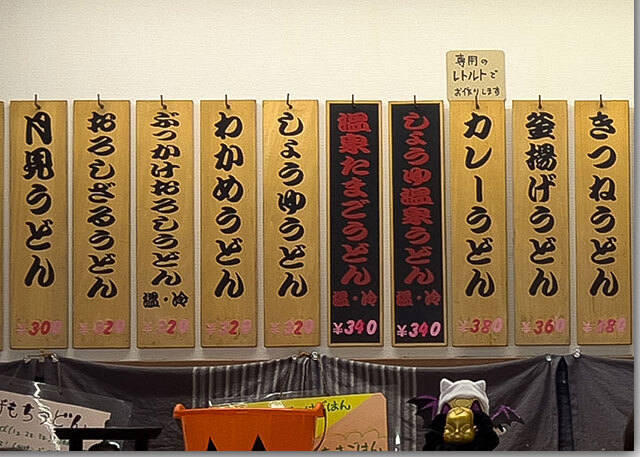 専用の
レトルトで
お作りします
きつねうどん
釜揚げうどん
¥360
カレーうどん
¥380
しょうゆ温泉うどん
温・冷
¥340
温泉たまごうどん
温・冷
¥340
しょうゆうどん
¥320
わかめうどん
¥320
ぶっかけおろしうどん
温・冷
¥320
おろしざるうどん
¥320
月見うどん
¥300
ごはん
ごはん